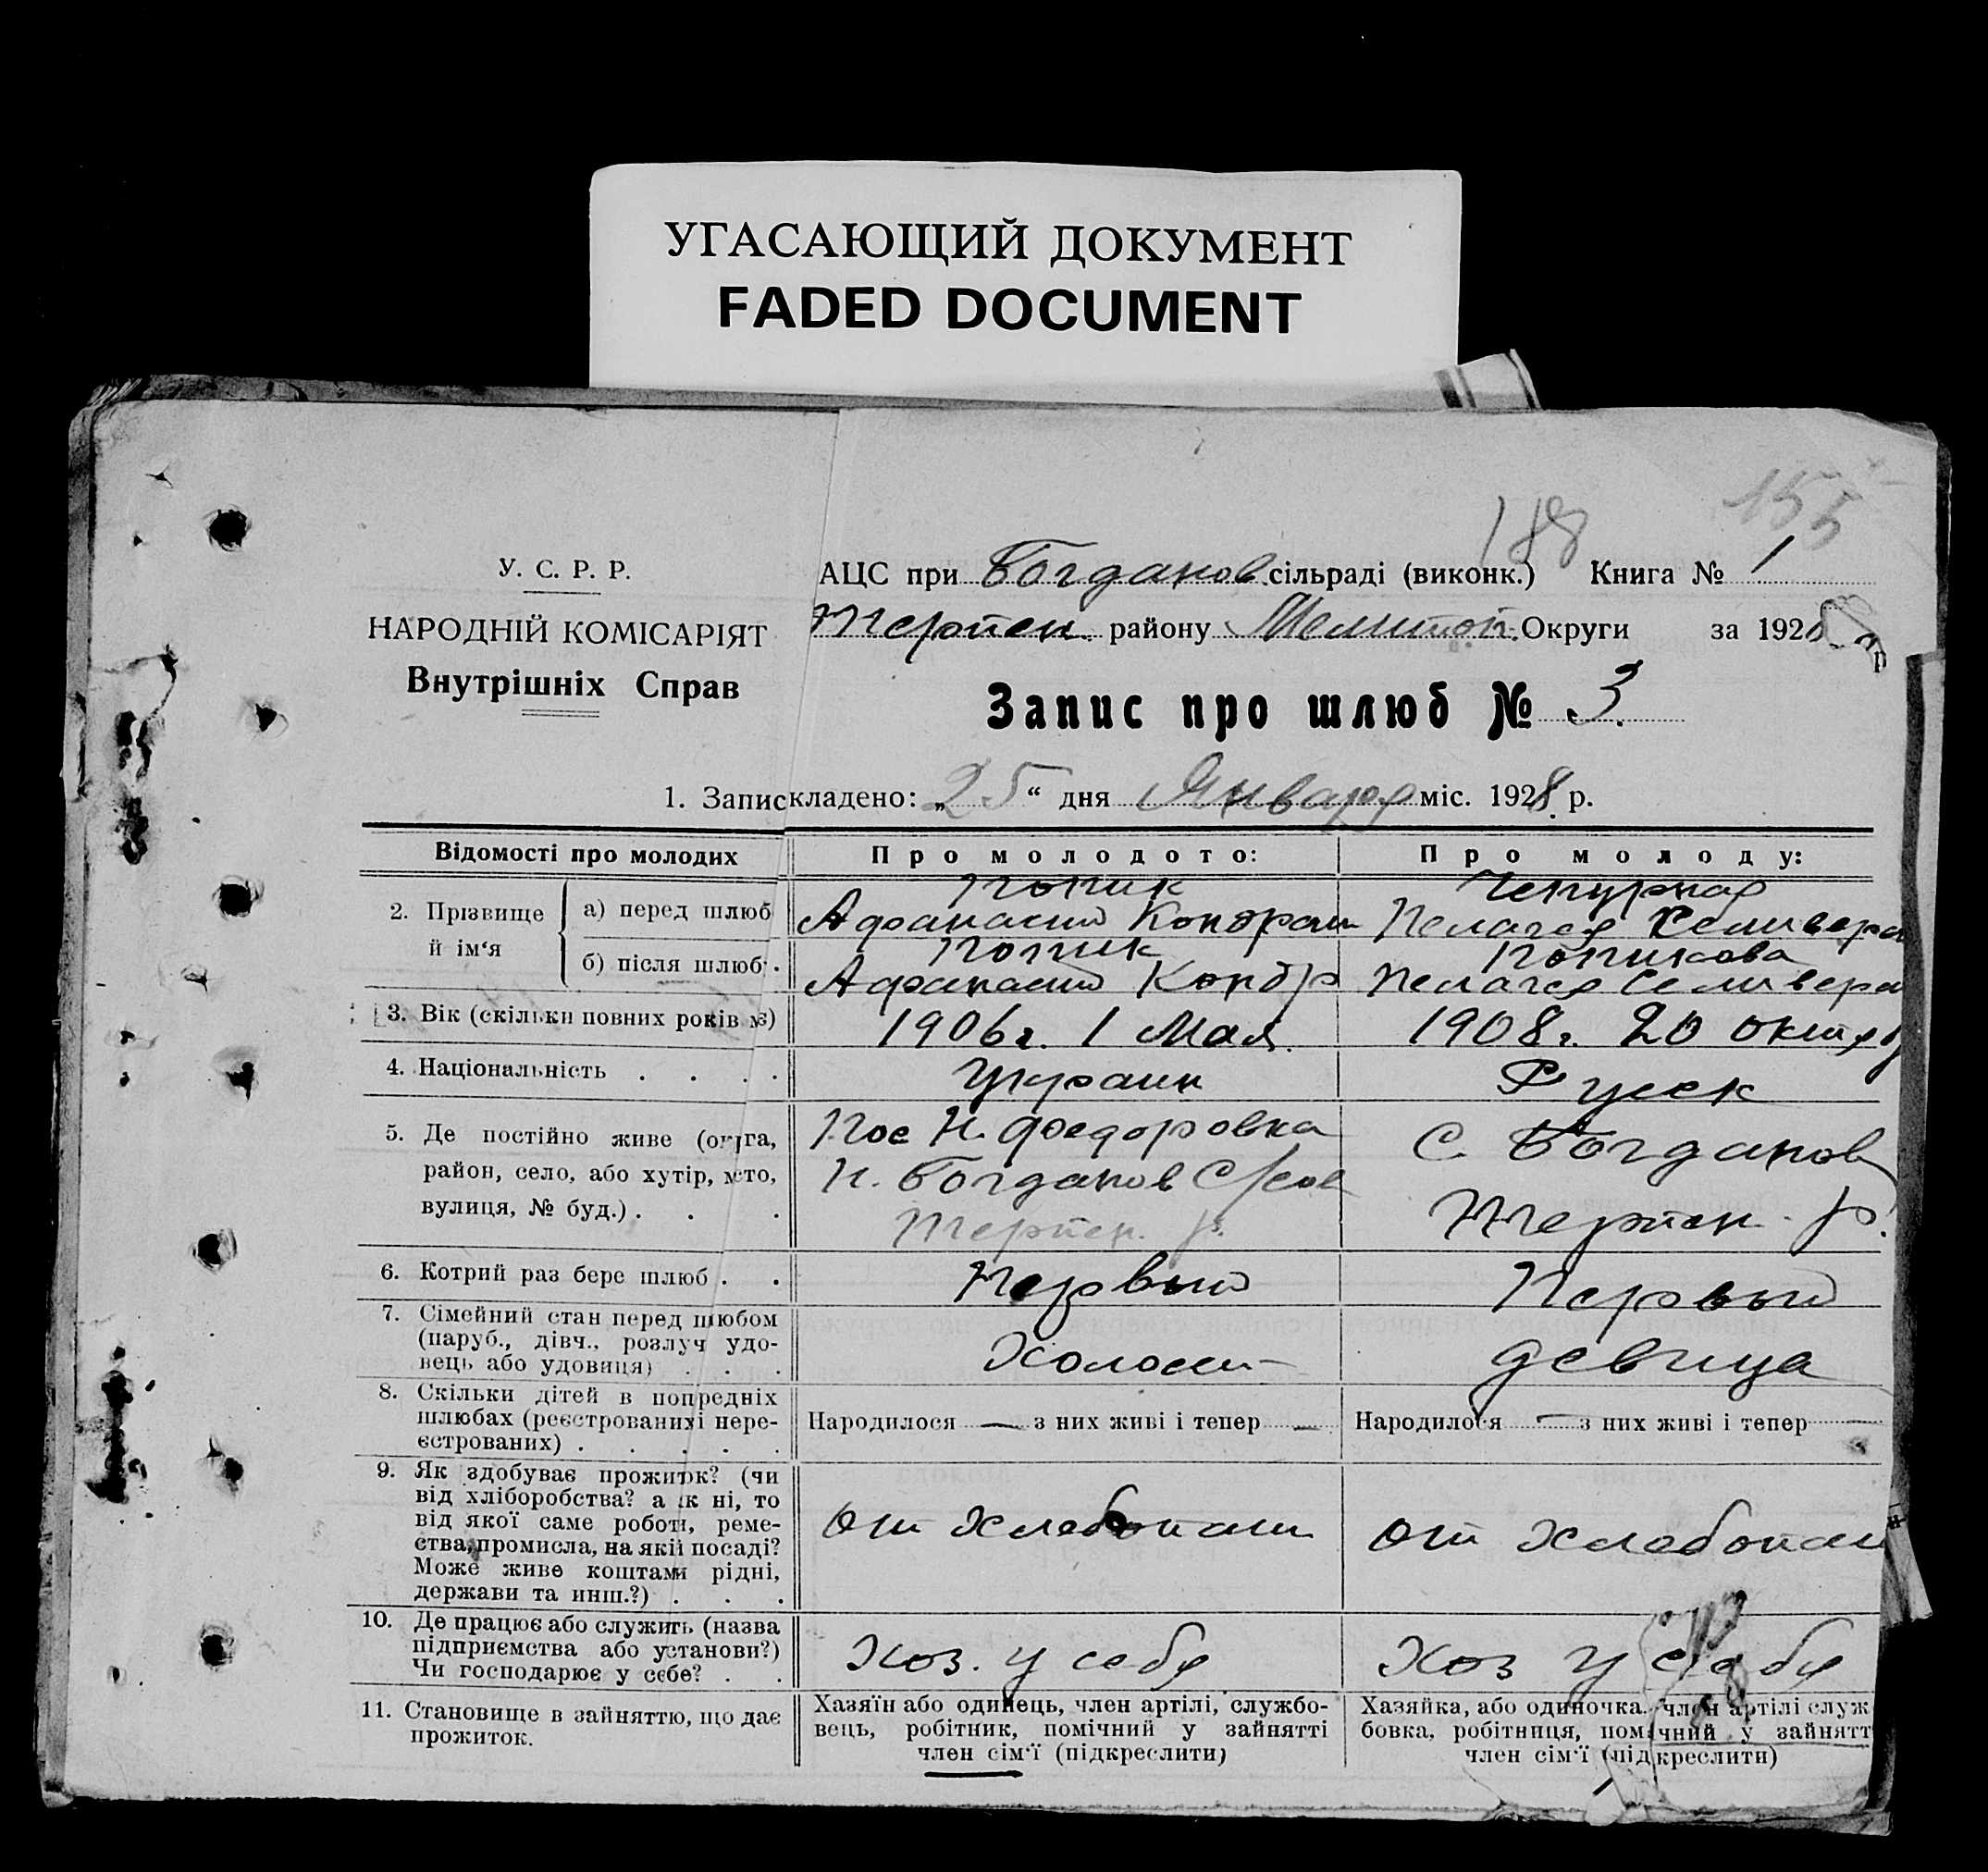 УГАСАЮЩИЙ ДОКУМЕНТ
FADED DOCUMENT
155
188
У. С. Р. Р.
НАРОДНІЙ КОМІСАРІЯТ
Внутрішніх Справ
АЦС при Богданов. сільраді (виконк.) Книга № 1
Терпен. району Мелитоп. Округи за 1928 р
Запис про шлюб № 3.
1. Запис кладено: „25“ дня Января міс. 1928 р.
Відомості про молодих
Про молодого:
Про молоду:
2. Прізвище й ім‘я
а) перед шлюб
Попик
Афанасий Кондрат
Чепурная
Пелагея Селивера
б) після шлюб.
Попик
Афанасий Кондр
Попикова
Пелагея Селивера
3. Вік (скільки повних років має)
1906г. 1 Мая.
1908г. 20 октяб
4. Національність . . . .
Украин
Руск
5. Де постійно живе (округа,
район, село, або хутір, місто,
вулиця, № буд.) . . .
Пос Н. Федоровка
Н. Богданов С/сов
Терпен. р.
С. Богданов
Терпен. р.
6. Котрий раз бере шлюб . .
Первый
Первый
7. Сімейний стан перед шлюбом
(паруб., дівч., розлуч удо-
вець або удовиця) . . .
Холост
девица
8. Скільки дітей в попредніх
шлюбах (реєстрованих і нере-
єстрованих) . . . . .
Народилося — з них живі і тепер —
Народилося — з них живі і тепер —
9. Як здобуває прожиток? (чи
від хліборобства? а як ні, то
від якої саме роботи, реме-
ства, промисла, на якій посаді?
Може живе коштами рідні,
держави та инш.?) . . .
От хлебопаш
от хлебопаш
10. Де працює або служить (назва
підприємства або установи?)
Чи господарює у себе? . .
Хоз. у себя
Хоз у себя
11. Становище в зайняттю, що дає
прожиток.
Хазяїн або одинець, член артілі, службо-
вець, робітник, помічний у зайнятті
член сім‘ї (підкреслити)
Хазяйка, або одиночка, член артілі служ
бовка, робітниця, помічний у зайнятт
член сім‘ї (підкреслити)